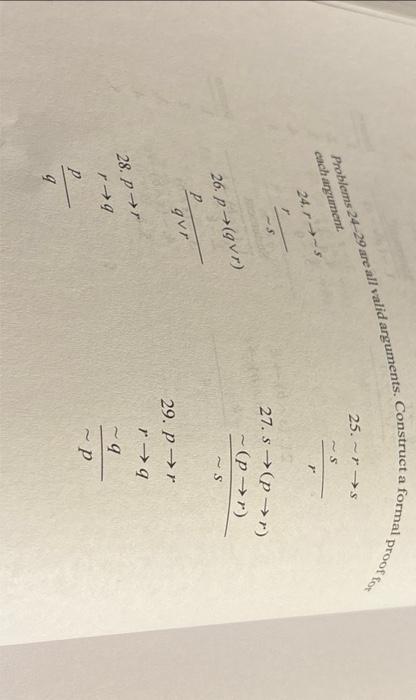 Problems 24-29 are all valid arguments. Construct a formal proof for
each argument.
24. r → ~ s
r
~ s
25. ~ r → s
~ s
r
26. p → (q ∨ r)
p
q ∨ r
27. s → (p → r)
~ (p → r)
~ s
28. p → r
r → q
p
q
29. p → r
r → q
~ q
~ p